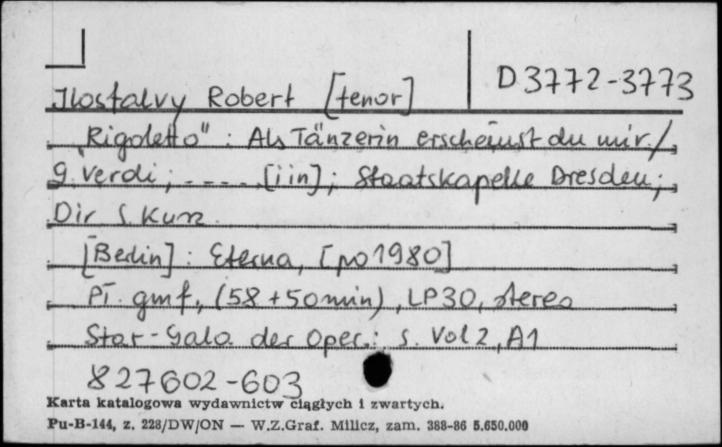 D 3772-3773
Ilosfalvy Robert [tenor]
"Rigoletto" : Als Tänzerin erscheinst du mir. /
G. Verdi ; - - - - . [i in] ; Staatskapelle Dresden ;
Dir. S. Kurz.
[Berlin] : Eterna, [po 1980]
Pł. gmf., (58 + 50 min), LP30, stereo
Star-Gala der Oper. : S. Vol 2, A1
827602-603
Karta katalogowa wydawnictw ciągłych i zwartych.
Pu-B-144, z. 228/DW/ON — W.Z.Graf. Milicz, zam. 388-86 5.650.000